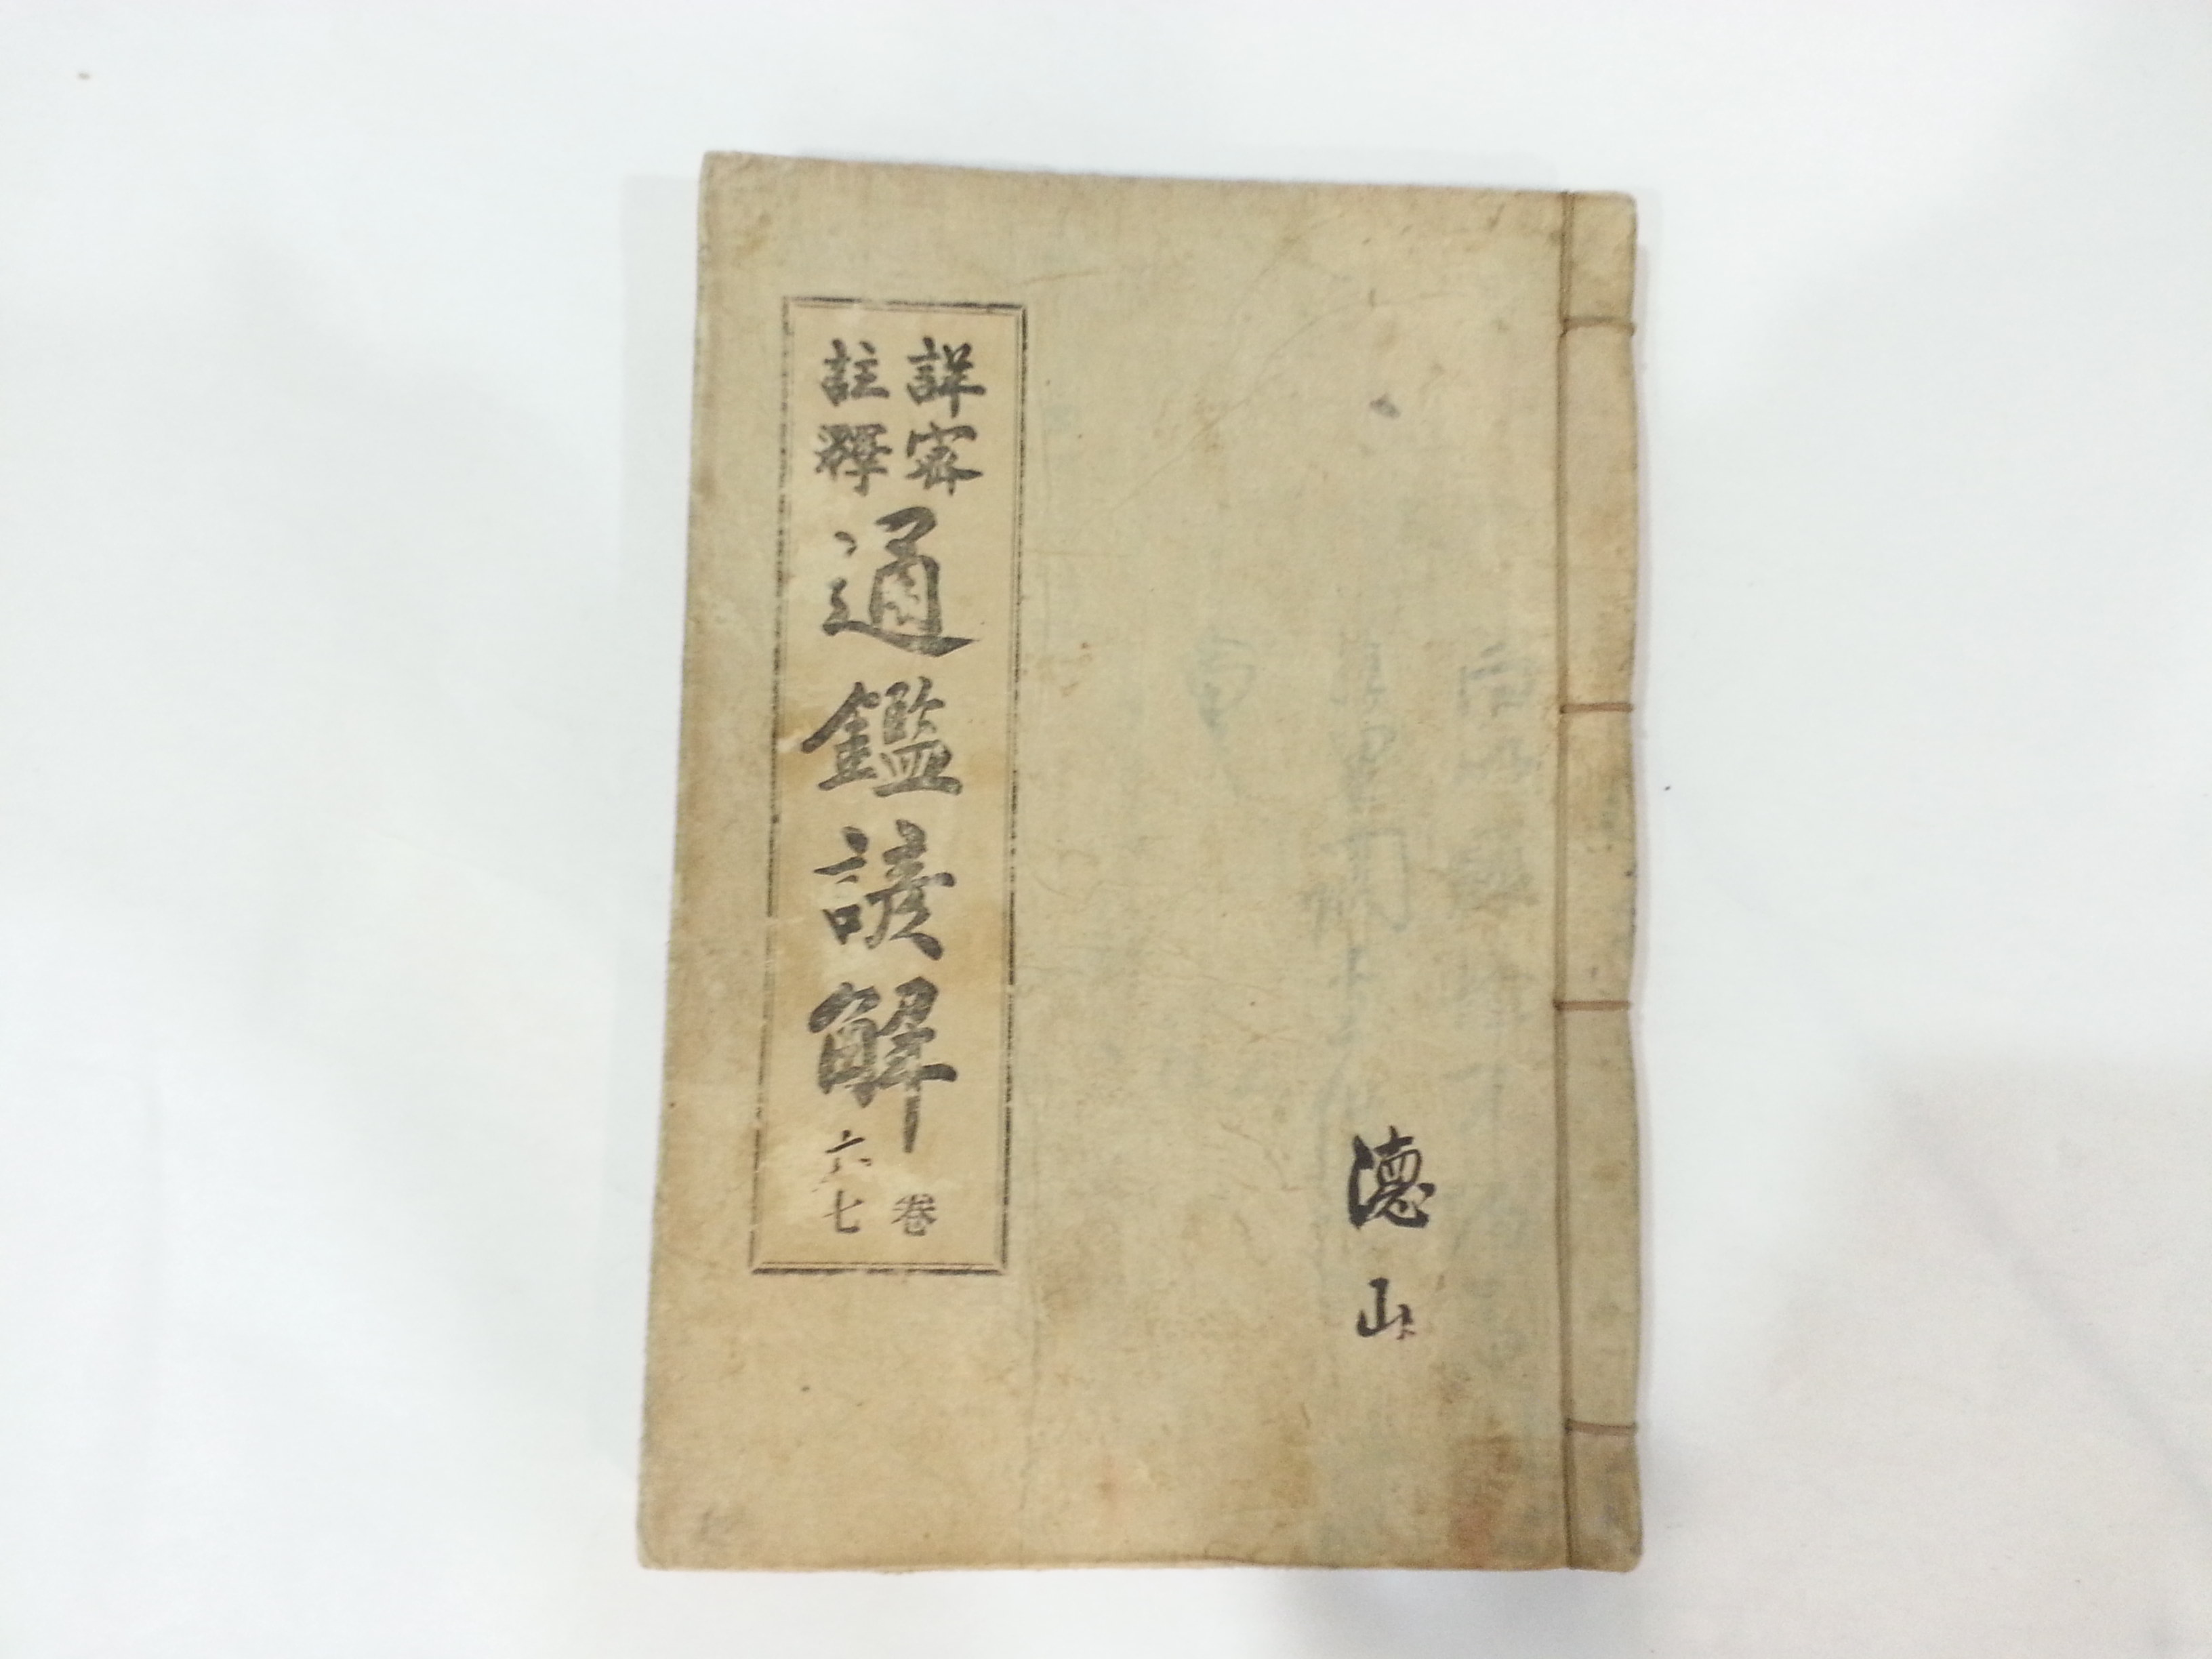 德山
詳密
註釋
通鑑諺解
卷
六七